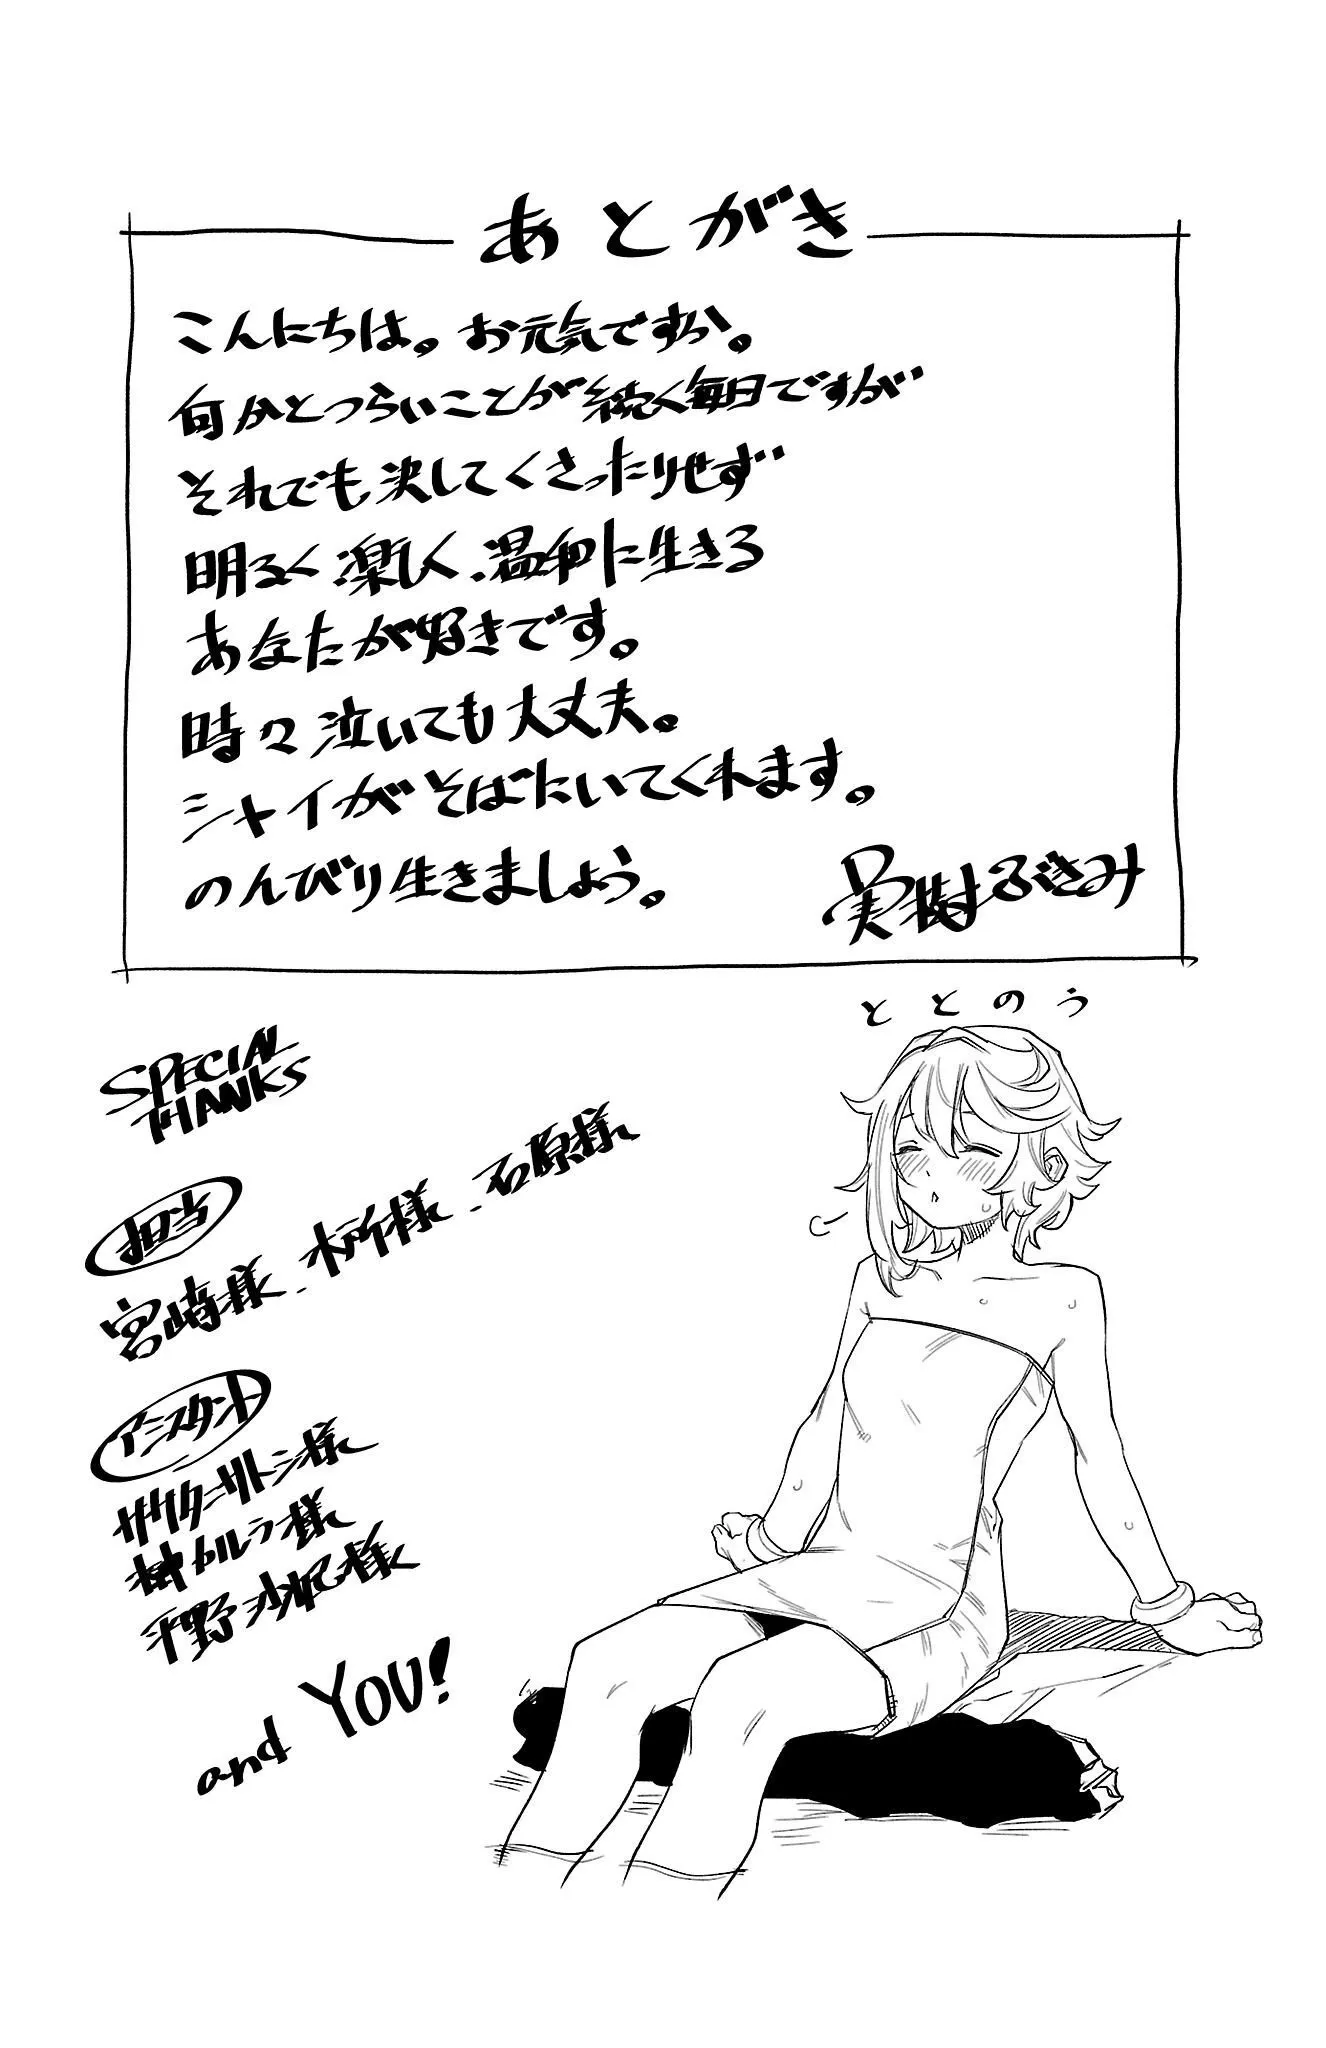 あとがき
こんにちは。お元気ですか。
何かとつらいことが続く毎日ですが
それでも決してくさったりせず
明るく楽しく、温和に生きる
あなたが好きです。
時々泣いても大丈夫。
シャイがそばにいてくれます。
のんびり生きましょう。
実樹ぶきみ
ととのう
SPECIAL
THANKS
担当
宮崎様、木所様、石原様
アシスタント
サワタニサトシ様
カルラ様
平野沙妃様
and YOU!